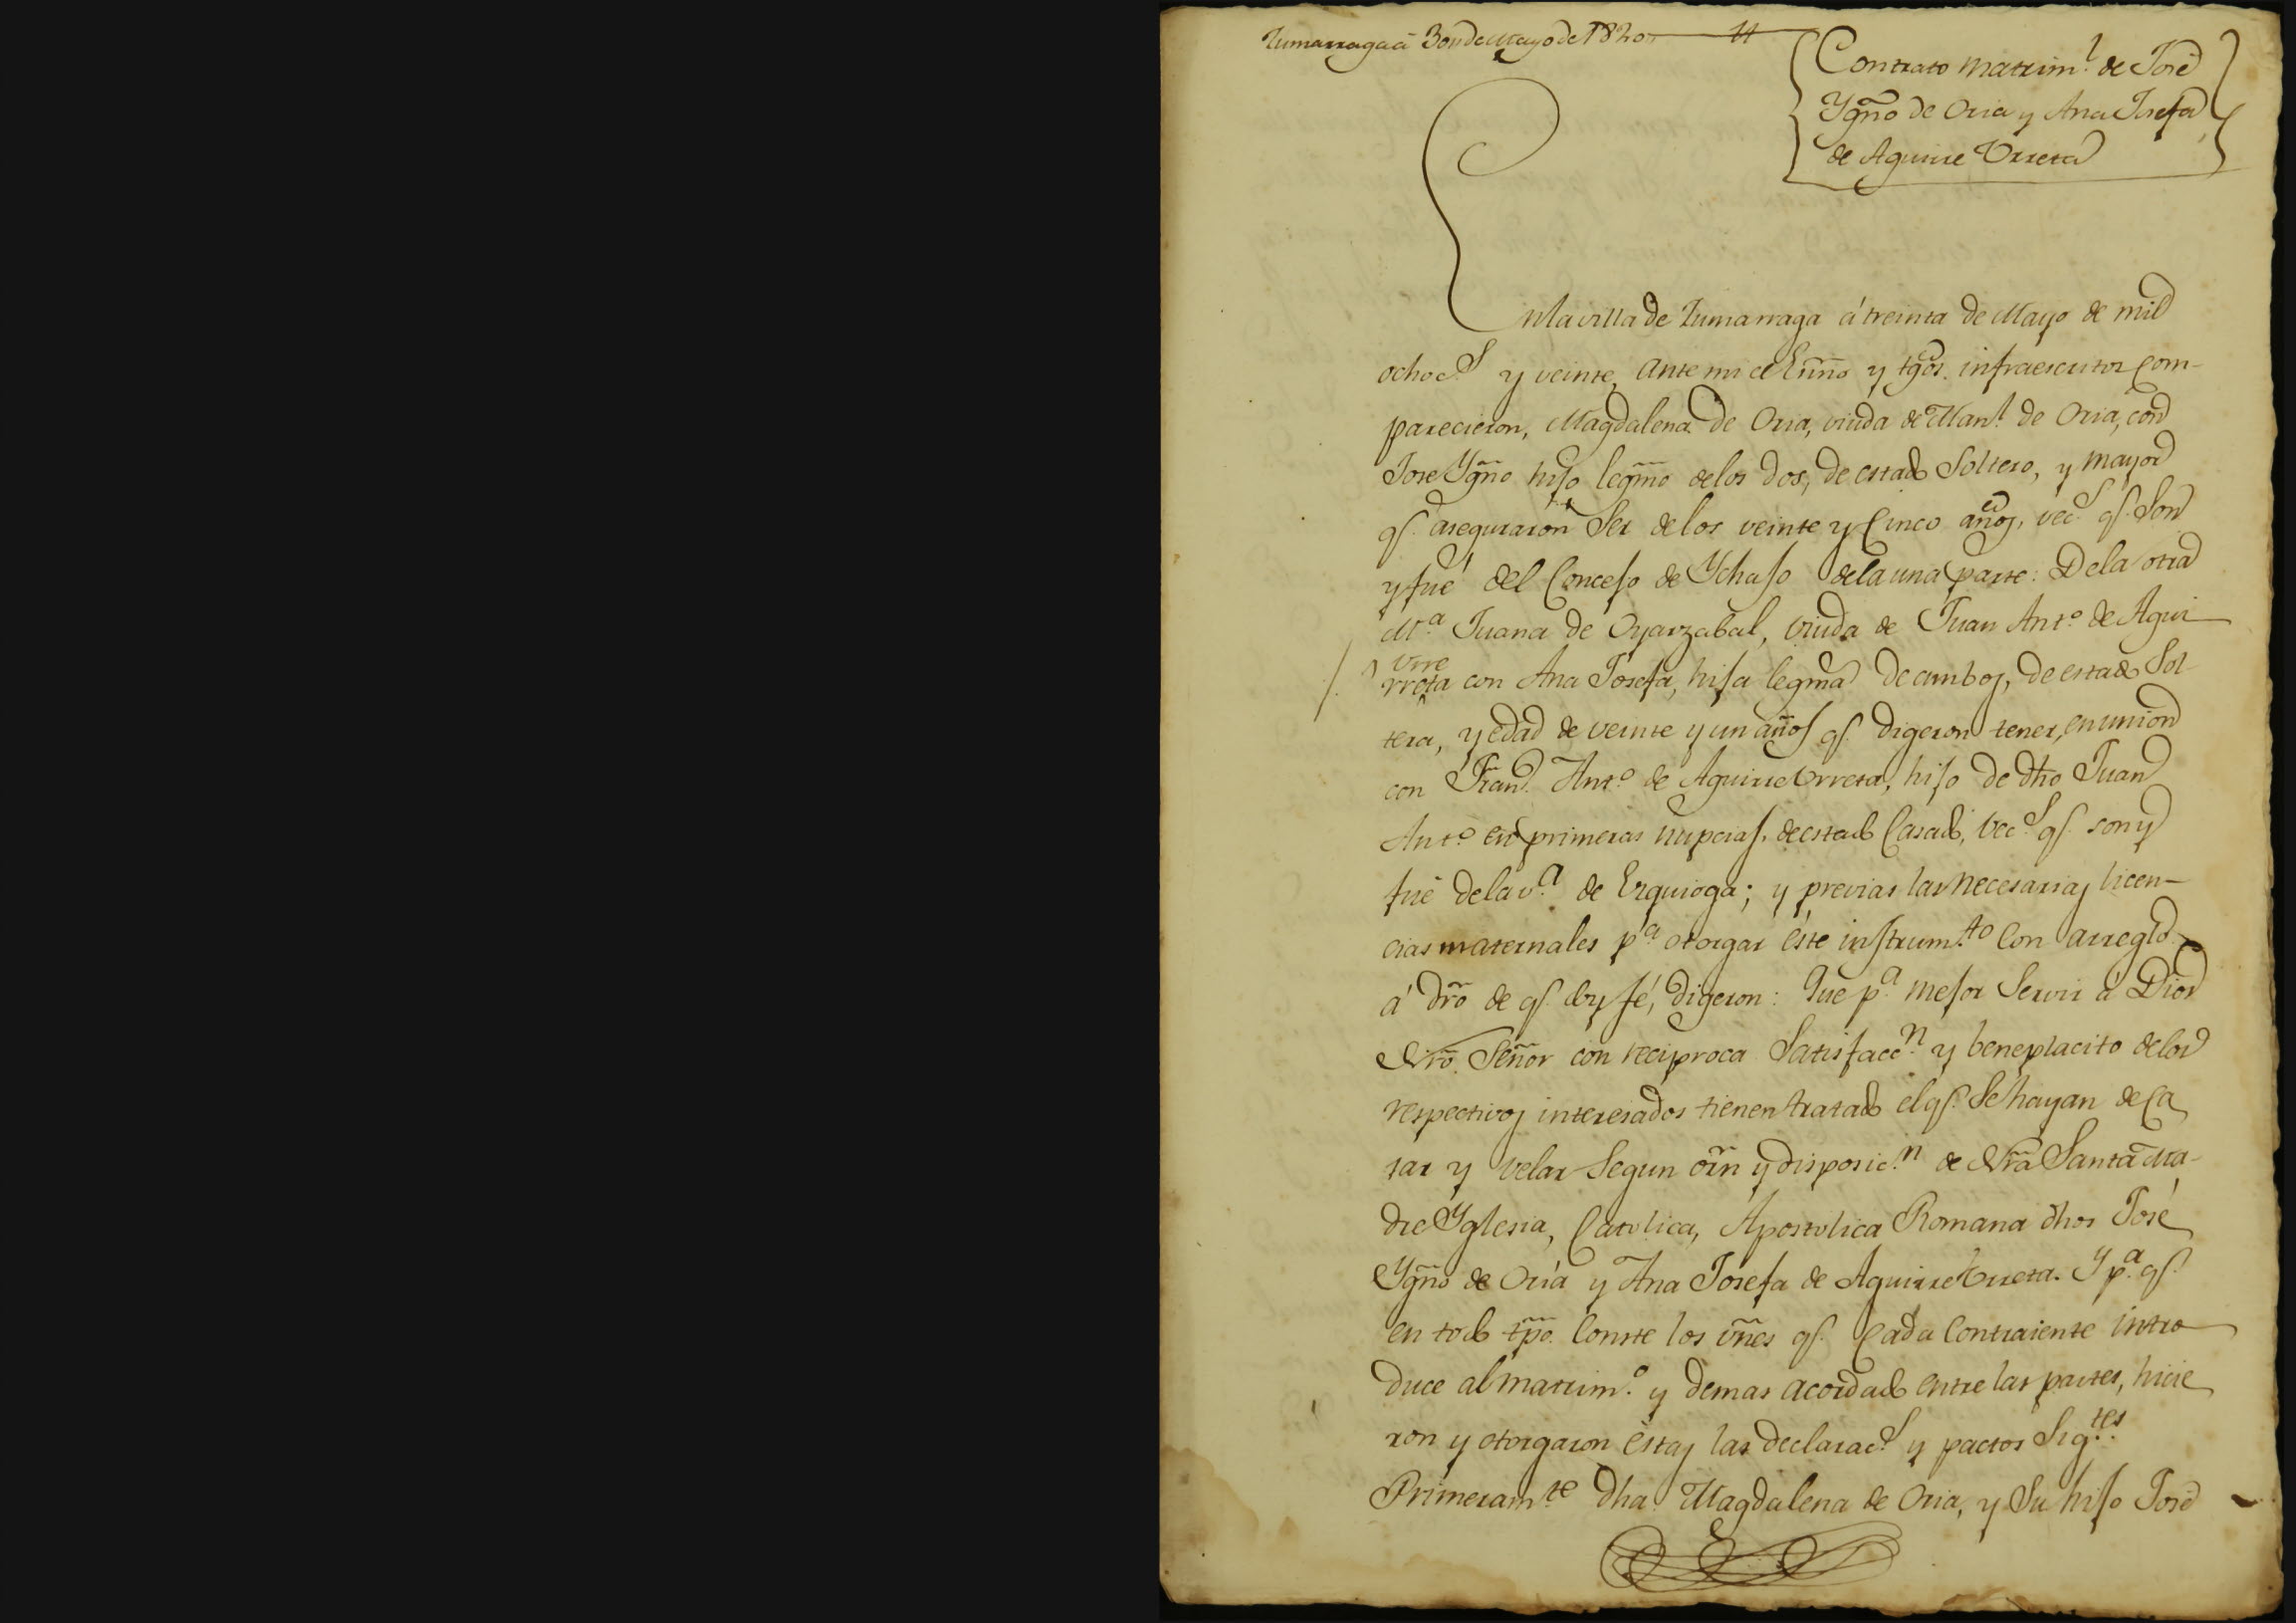 Zumarraga á 30 de Mayo de 1820
Contrato matrim.l de José
Ygño de Oria y Ana Josefa
de Aguirre Urreta
En la villa de Zumarraga á treinta de Mayo de mil
ochoc.s y veinte, ante mi el Ssnño y tgos. infraescritos com-
parecieron, Magdalena de Oria, viuda de Man.l de Oria, con
Jose Ygño hijo legmo de los dos, de estado Soltero, y mayor
q.e aseguraron Ser de los veinte y Cinco años, vec.s q.e Son
y fué del Concejo de Ychaso de la una parte: De la otra
M.a Juana de Oyarzabal, viuda de Juan Ant.o de Agui
rre Urreta con Ana Josefa, hija legma de ambos, de estado Sol-
tera, y edad de veinte y un años q.e digeron tener, en union
con Fran.co Ant.o de Aguirre Urreta, hijo de dho Juan
Ant.o en primeras nupcias, de estado Casado, vec.s q.e son y
fué de la v.a de Ezquioga; y previas las necesarias licen-
cias maternales p.a otorgar éste instrum.to con arreglo
á dro de q.e doy fé, digeron: Que p.a mejor Servir á Dios
Nro. Señor con reciproca Satisfacc.n y beneplacito de los
respectivos interesados tienen tratado el q.e Se hayan de Ca
sar y velar Segun orn y disposic.n de Nra Santa Ma-
dre Yglesia, Catolica, Apostolica Romana dhos José
Ygño de Oria y Ana Josefa de Aguirre Urreta. Y p.a q.e
en todo tpo. Conste los vnes q.e Cada Contraiente intro
duce al matrim.o y demas acordado entre las partes, hicie
ron y otorgaron éstas las declarac.s y pactos Sig.tes
Primeram.te dha. Magdalena de Oria, y Su hijo José